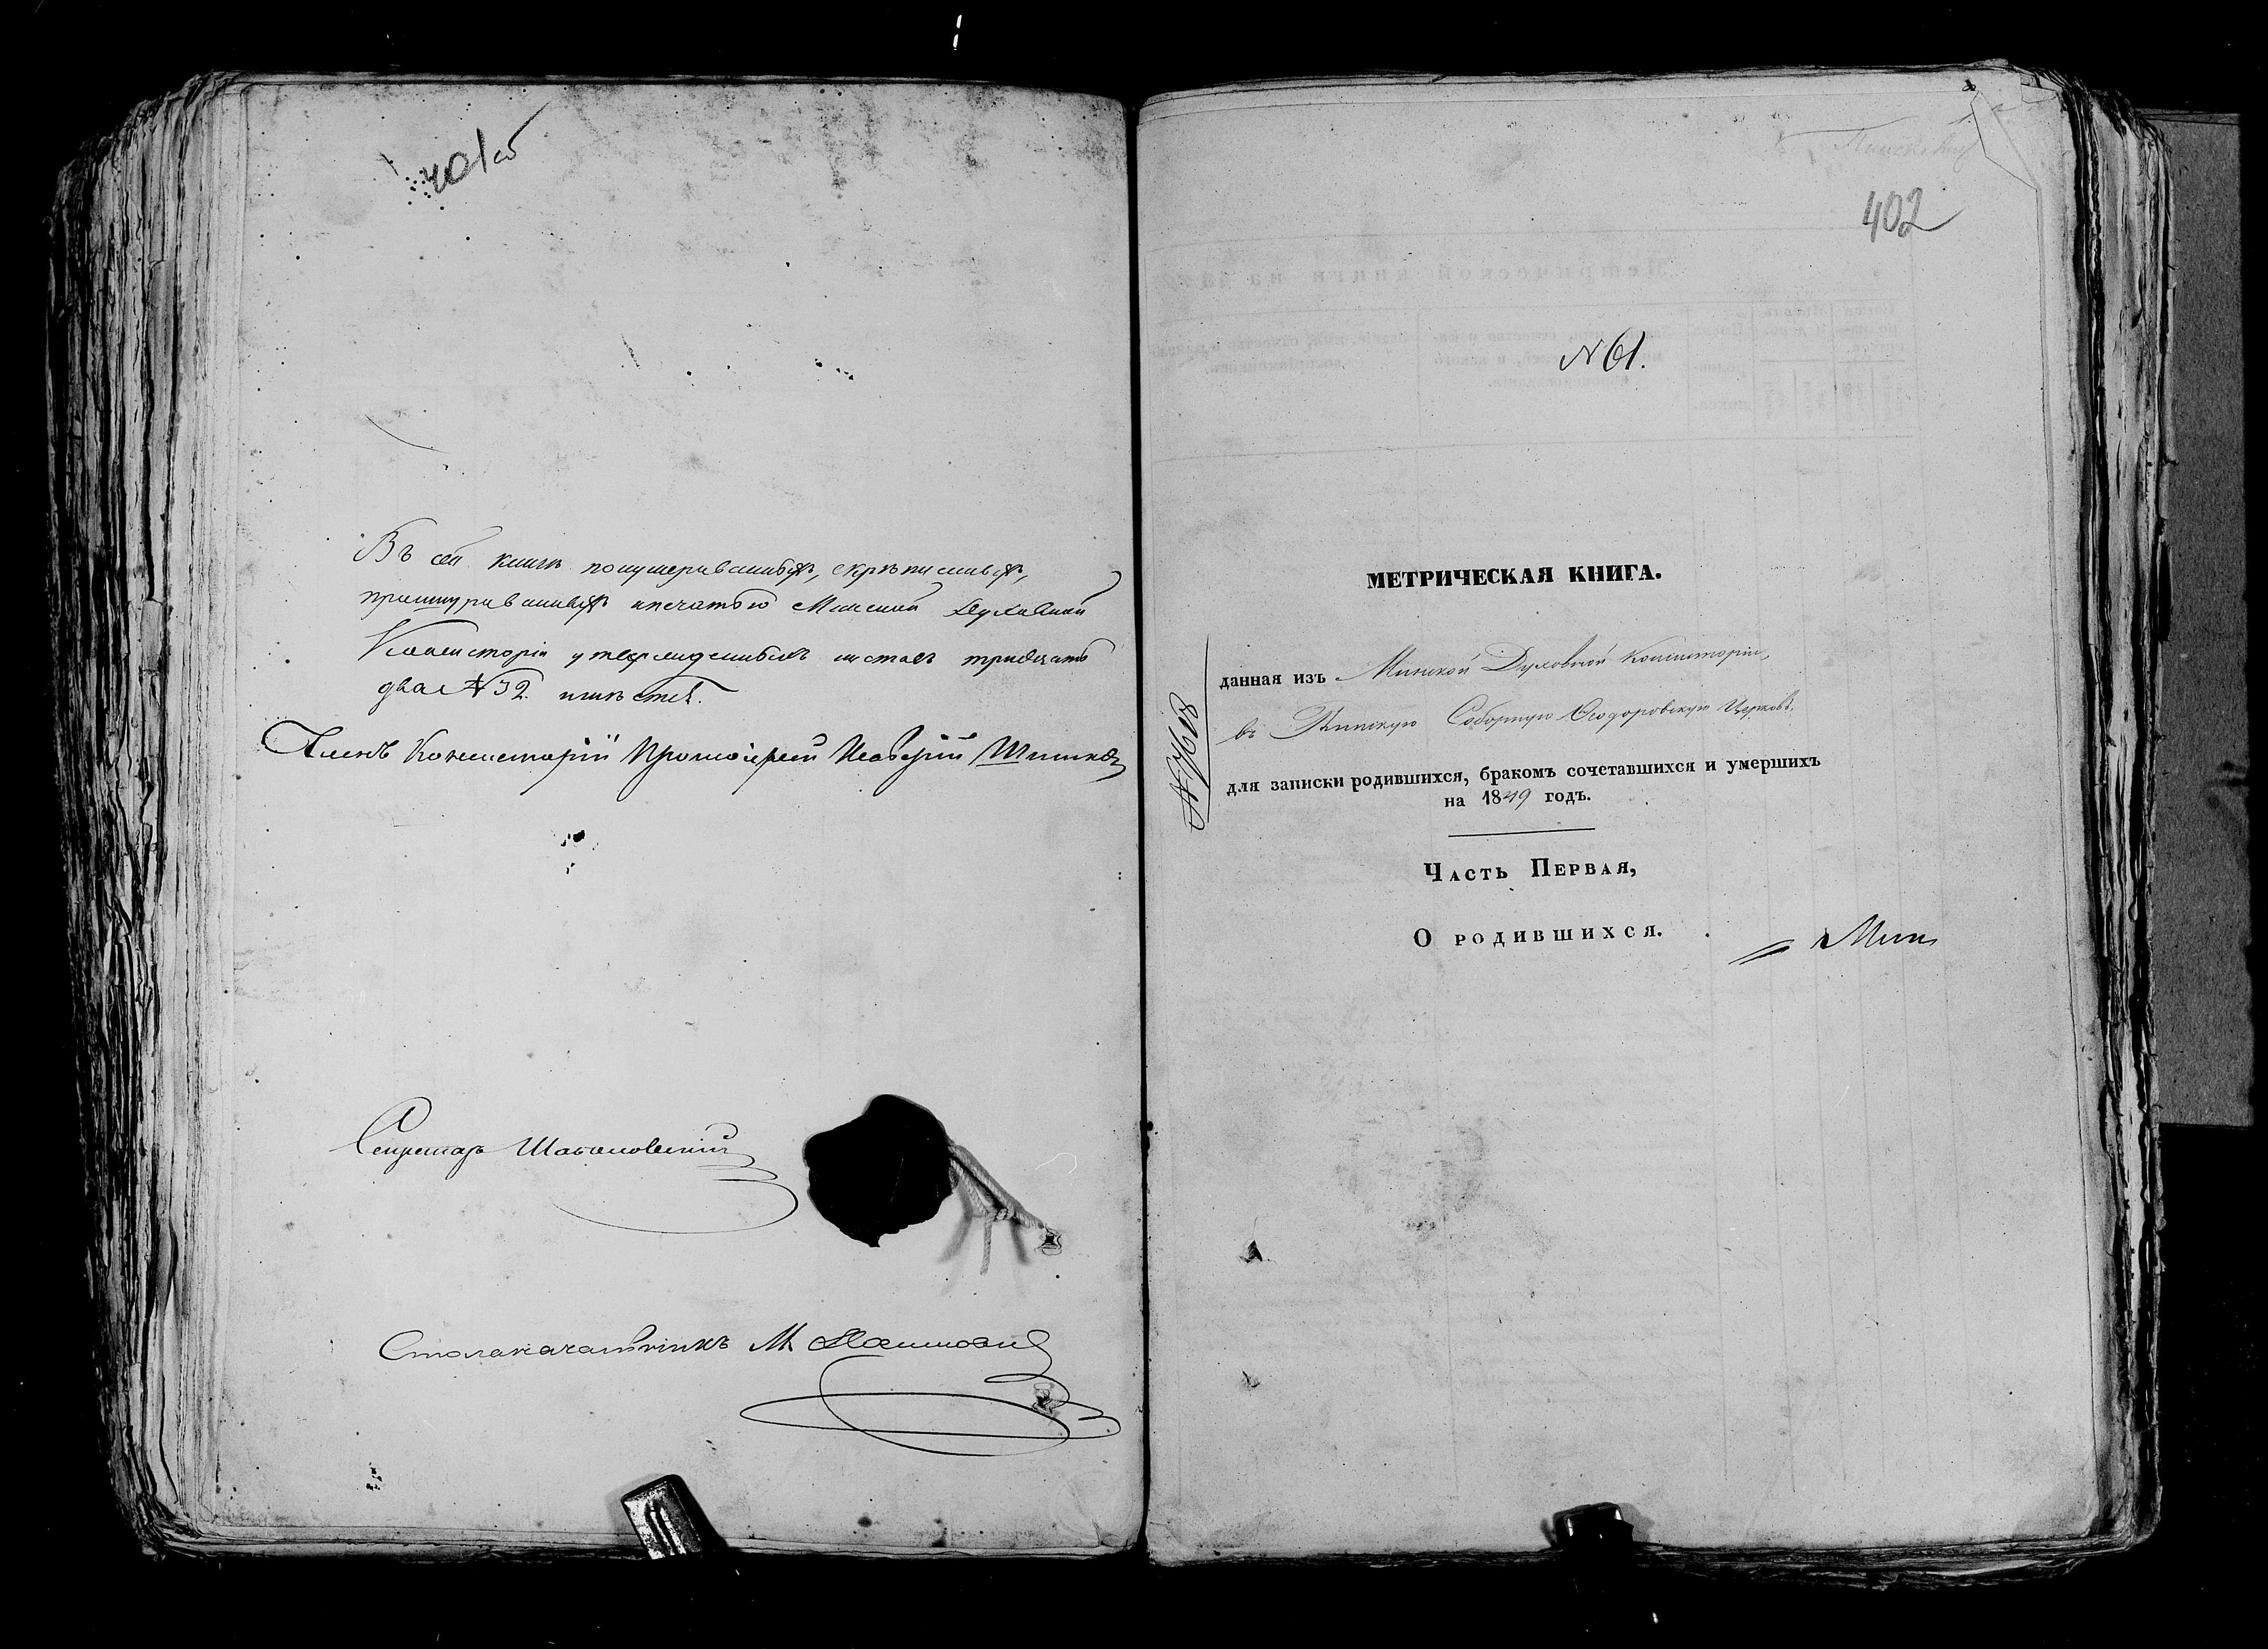 401об
Въ сей книгѣ нонумерованныхъ, скрѣпленныхъ,
прошнурованныхъ и печатью Минской Духовной
Консисторіи утвержденныхъ листовъ тридцать
два № 32. имѣется.
Членъ Консисторіи Протоіерей
Секретарь
Столоначальникъ М
402
№ 61.
МЕТРИЧЕСКАЯ КНИГА.
данная изъ Минской Духовной Консисторіи,
въ Пинскую Соборную Ѳеодоровскую Церковь,
для записки родившихся, бракомъ сочетавшихся и умершихъ
на 1849 годъ.
Часть Первая,
О родившихся.